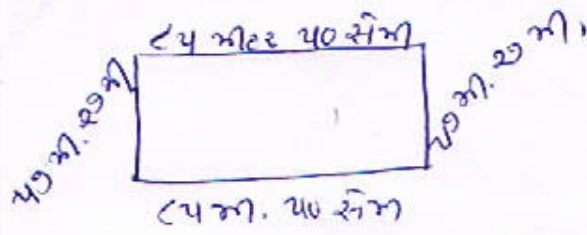 ૮૫ મીટર ૫૦ સેમી
૫૭ મી. ૨૭ મી
૫૭ મી. ૨૭ મી.
૮૫ મી. ૫૦ સેમી